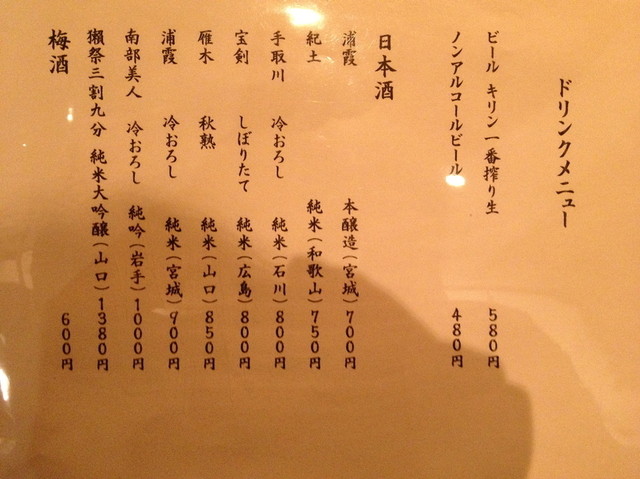 ドリンクメニュー
ビール キリン一番搾り生 580円
ノンアルコールビール 480円
日本酒
浦霞 本醸造（宮城）700円
紀土 純米（和歌山）750円
手取川 冷おろし 純米（石川）800円
宝剣 しぼりたて 純米（広島）800円
雁木 秋熟 純米（山口）850円
浦霞 冷おろし 純米（宮城）900円
南部美人 冷おろし 純吟（岩手）1000円
獺祭三割九分 純米大吟醸（山口）1380円
梅酒 600円